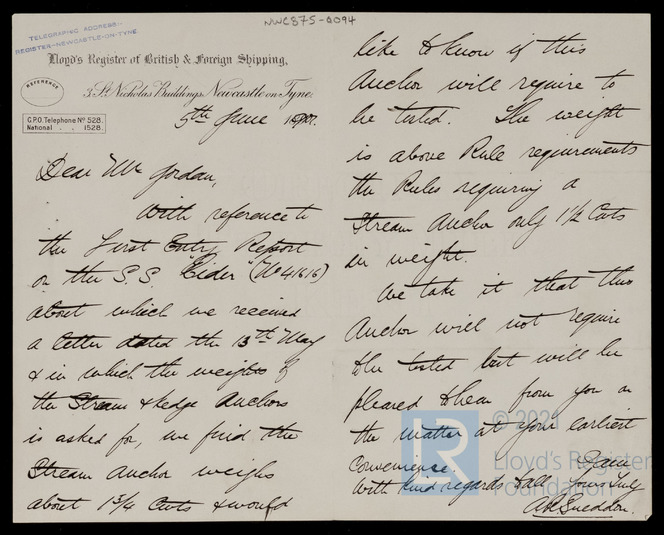 NWC875-0094
TELEGRAPHIC ADDRESS:-
REGISTER-NEWCASTLE-ON-TYNE
Lloyd's Register of British & Foreign Shipping,
REFERENCE
3 St. Nicholas Buildings, Newcastle on Tyne.
G.P.O. Telephone No 528.
National . . 1528.
5th June 1907.
Dear Mr Jordan,
With reference to
the First Entry Report
on the S.S. "Eider" (No 41616)
about which we received
a letter dated the 13th May
& in which the weights of
the Stream & kedge Anchors
is asked for, we find the
Stream Anchor weighs
about 1 3/4 Cwts & would
like to know if this
Anchor will require to
be tested. The weight
is above Rule requirements
the Rules requiring a
Stream Anchor only 1 1/2 Cwts
in weight.
We take it that this
Anchor will not require
to be tested but will be
pleased to hear from you on
the matter at your earliest
Convenience.
With kind regards to all I am
Yours truly
Sneddon.
© 2021
LR
Lloyd's Register
Foundation